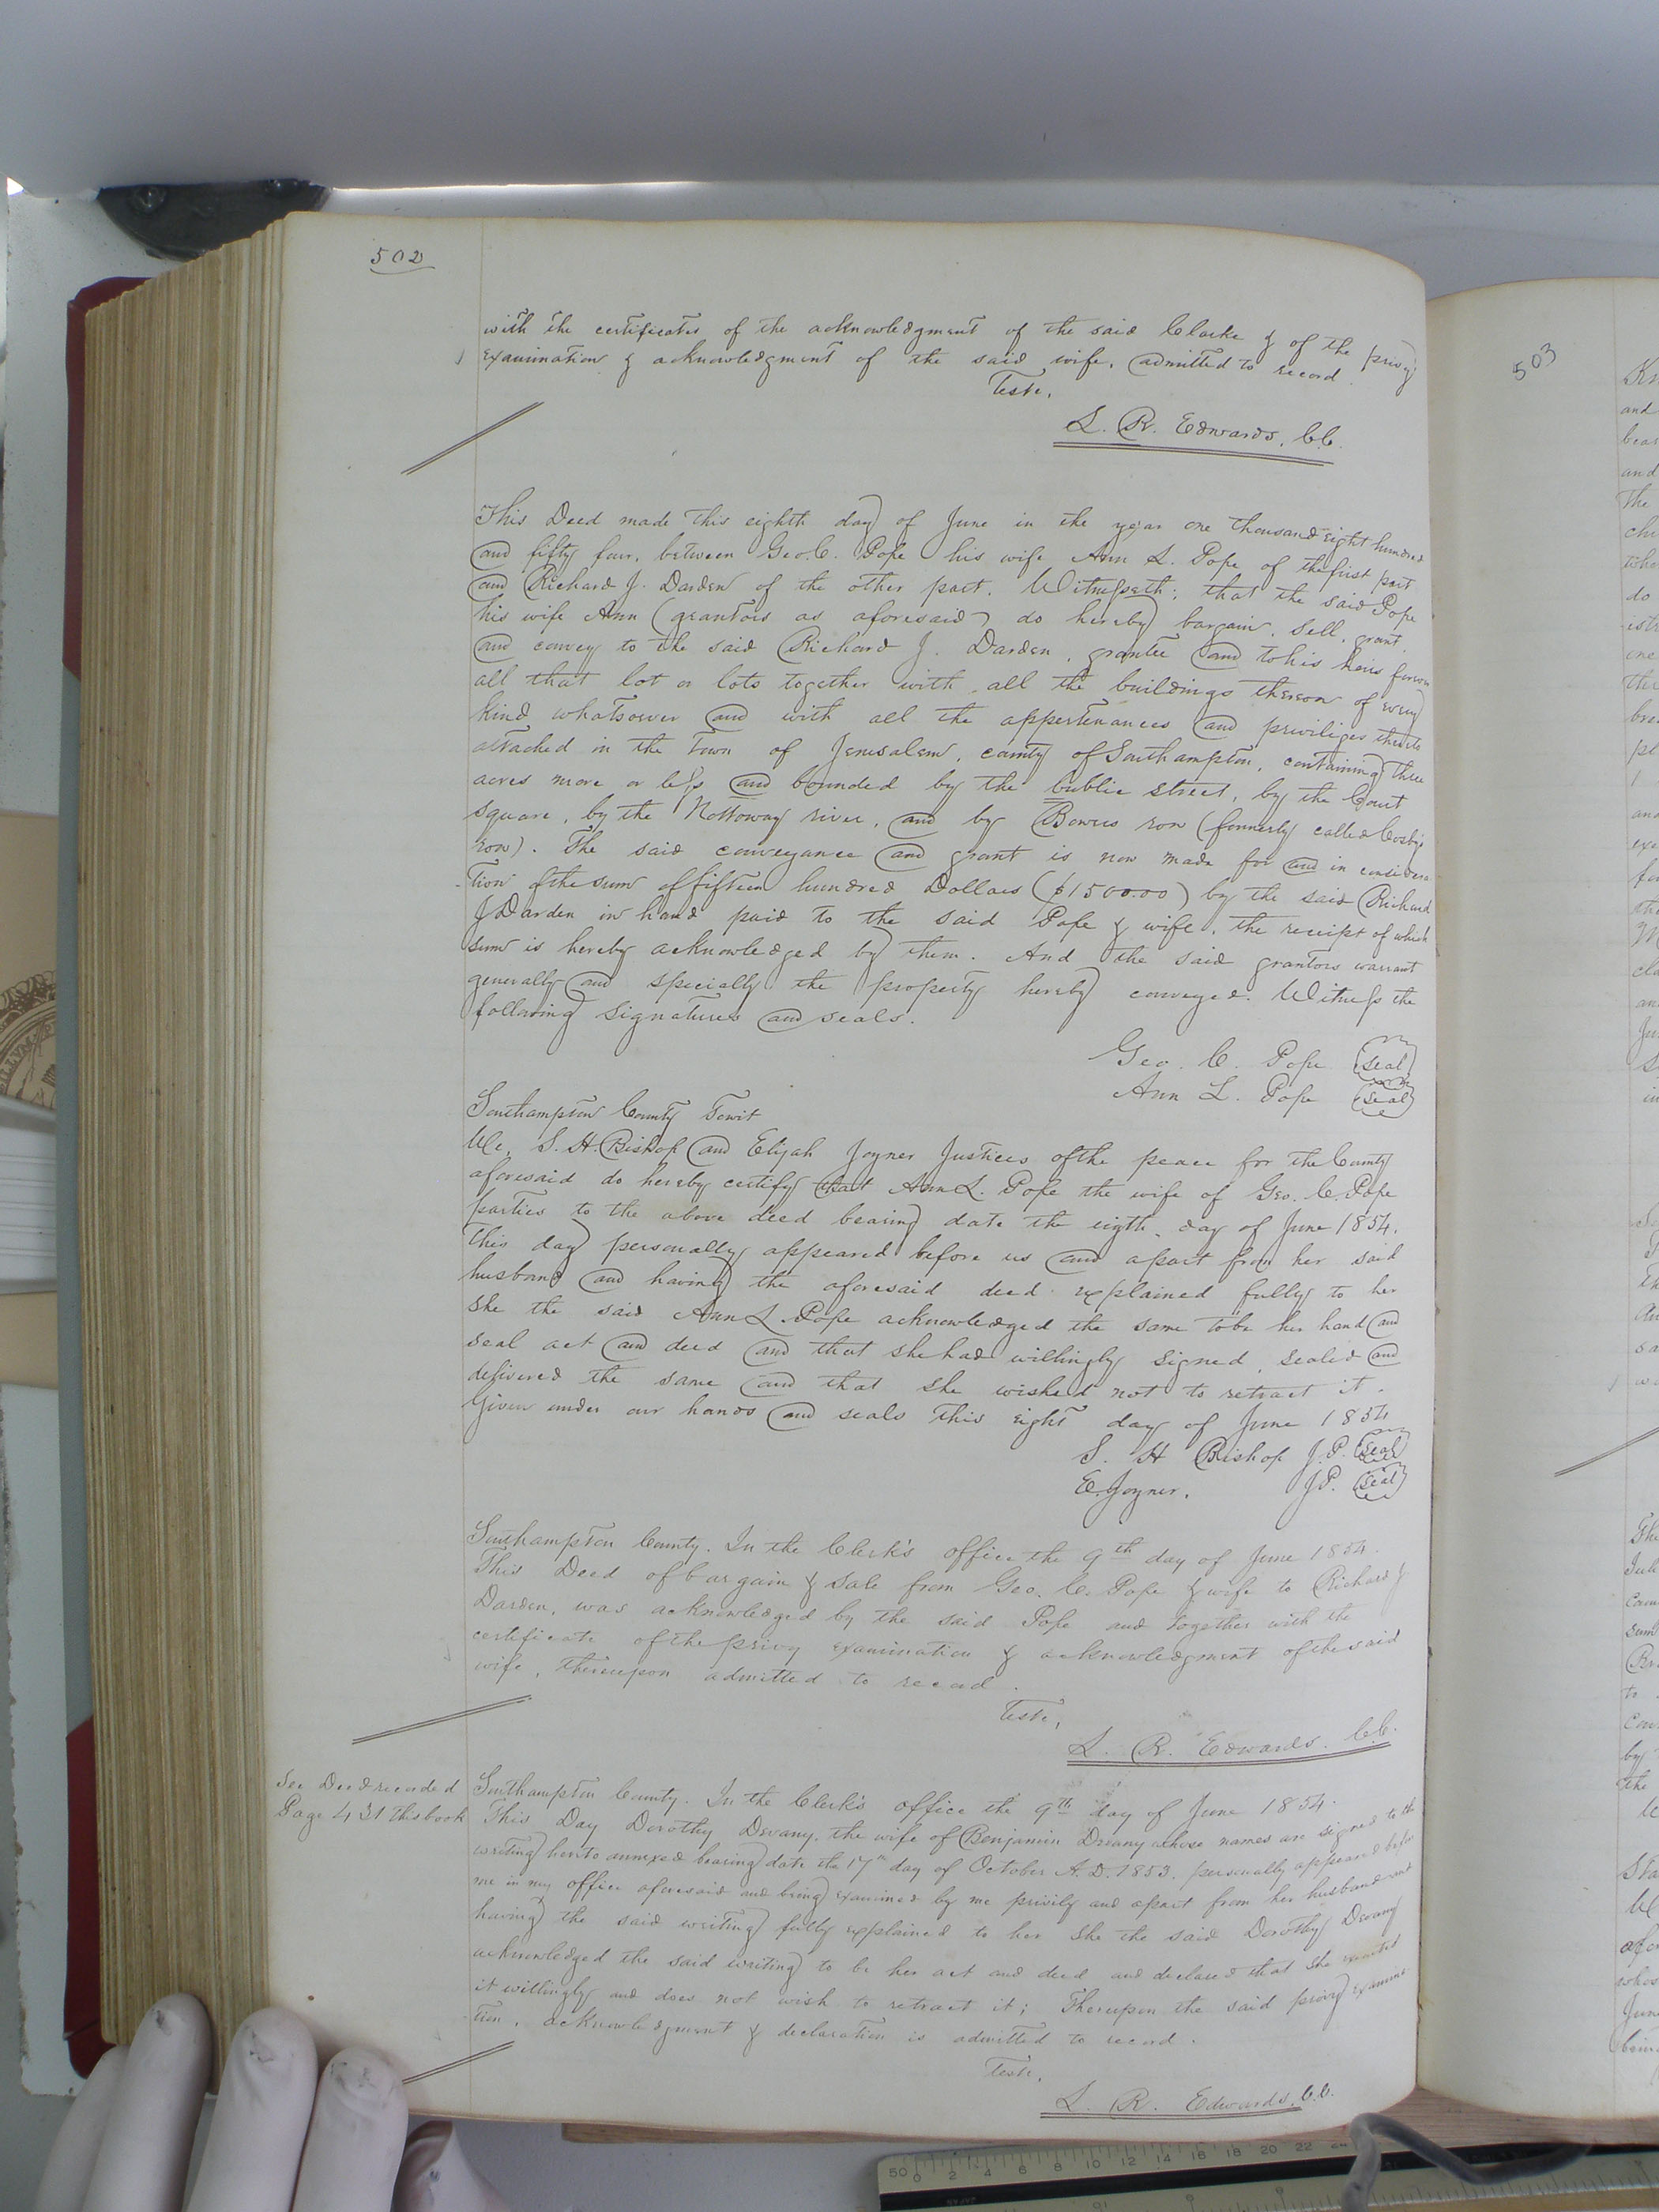 502
with the certificates of the acknowledgment of the said Clarke & of the privy
examination & acknowledgment of the said wife, admitted to record.
Teste,
L. R. Edwards, C.C.
This Deed made this eighth day of June in the year one thousand eight hundred
and fifty four, between Geo. C. Pope his wife Ann L. Pope of the first part
and Richard J. Darden of the other part. Witnesseth; that the said Pope
his wife Ann (grantors as aforesaid) do hereby bargain, sell, grant,
and convey to the said Richard J. Darden, grantee and to his heirs forever
all that lot or lots together with all the buildings thereon of every
kind whatsoever and with all the appertenances and priviliges thereto
attached in the Town of Jerusalem, county of Southampton, containing three
acres more or less and bounded by the public street, by the Court
square, by the Nottoway river, and by Bowers row (formerly called Cosby's
row). The said conveyance and grant is now made for and in considera
-tion of the sum of fifteen hundred Dollars ($1500.00) by the said Richard
J Darden in hand paid to the said Pope & wife, the receipt of which
sum is hereby acknowledged by them. And the said grantors warrant
generally and specially the property hereby conveyed. Witness the
following signatures and seals.
Geo. C. Pope seal
Ann L. Pope seal
Southampton County Towit
We, S. H. Bishop and Elijah Joyner Justices of the peace for the County
aforesaid do hereby certify that Ann L. Pope the wife of Geo. C. Pope
parties to the above deed bearing date the eigth day of June 1854,
this day personally appeared before us and apart from her said
husband and having the aforesaid deed explained fully to her
she the said Ann L Pope acknowledged the same to be her hand and
seal act and deed and that she had willingly signed, sealed and
delivered the same and that she wished not to retract it.
Given under our hands and seals this eight day of June 1854
S. H Bishop J.P. seal
E. Joyner. J.P. seal
Southampton County. In the Clerk's office the 9th day of June 1854.
This Deed of bargain & sale from Geo. C. Pope & wife to Richard J
Darden, was acknowledged by the said Pope and together with the
certificate of the privy examination & acknowledgment of the said
wife, thereupon admitted to record.
Teste,
L. R. Edwards. C.C.
See Deed recorded
Page 431 this book
Southampton County. In the Clerk's office the 9th day of June 1854.
This Day Dorothy Devany, the wife of Benjamin Devany whose names are signed to the
writing hereto annexed bearing date the 17th day of October A.D. 1853, personally appeared before
me in my office aforesaid and being examined by me privily and apart from her husband and
having the said writing fully explained to her She the said Dorothy Devany
acknowledged the said writing to be her act and deed and declared that She executed
it willingly and does not wish to retract it; Thereupon the said privy examina
-tion, acknowledgment & declaration is admitted to record.
Teste,
L. R. Edwards, C.C.
503
50 0 2 4 6 8 10 12 14 16 18 20 22